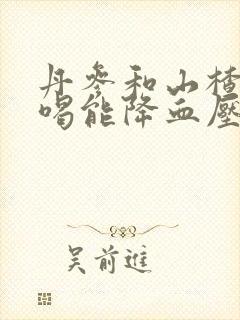 丹参和山楂
喝能降血壓
吴前進